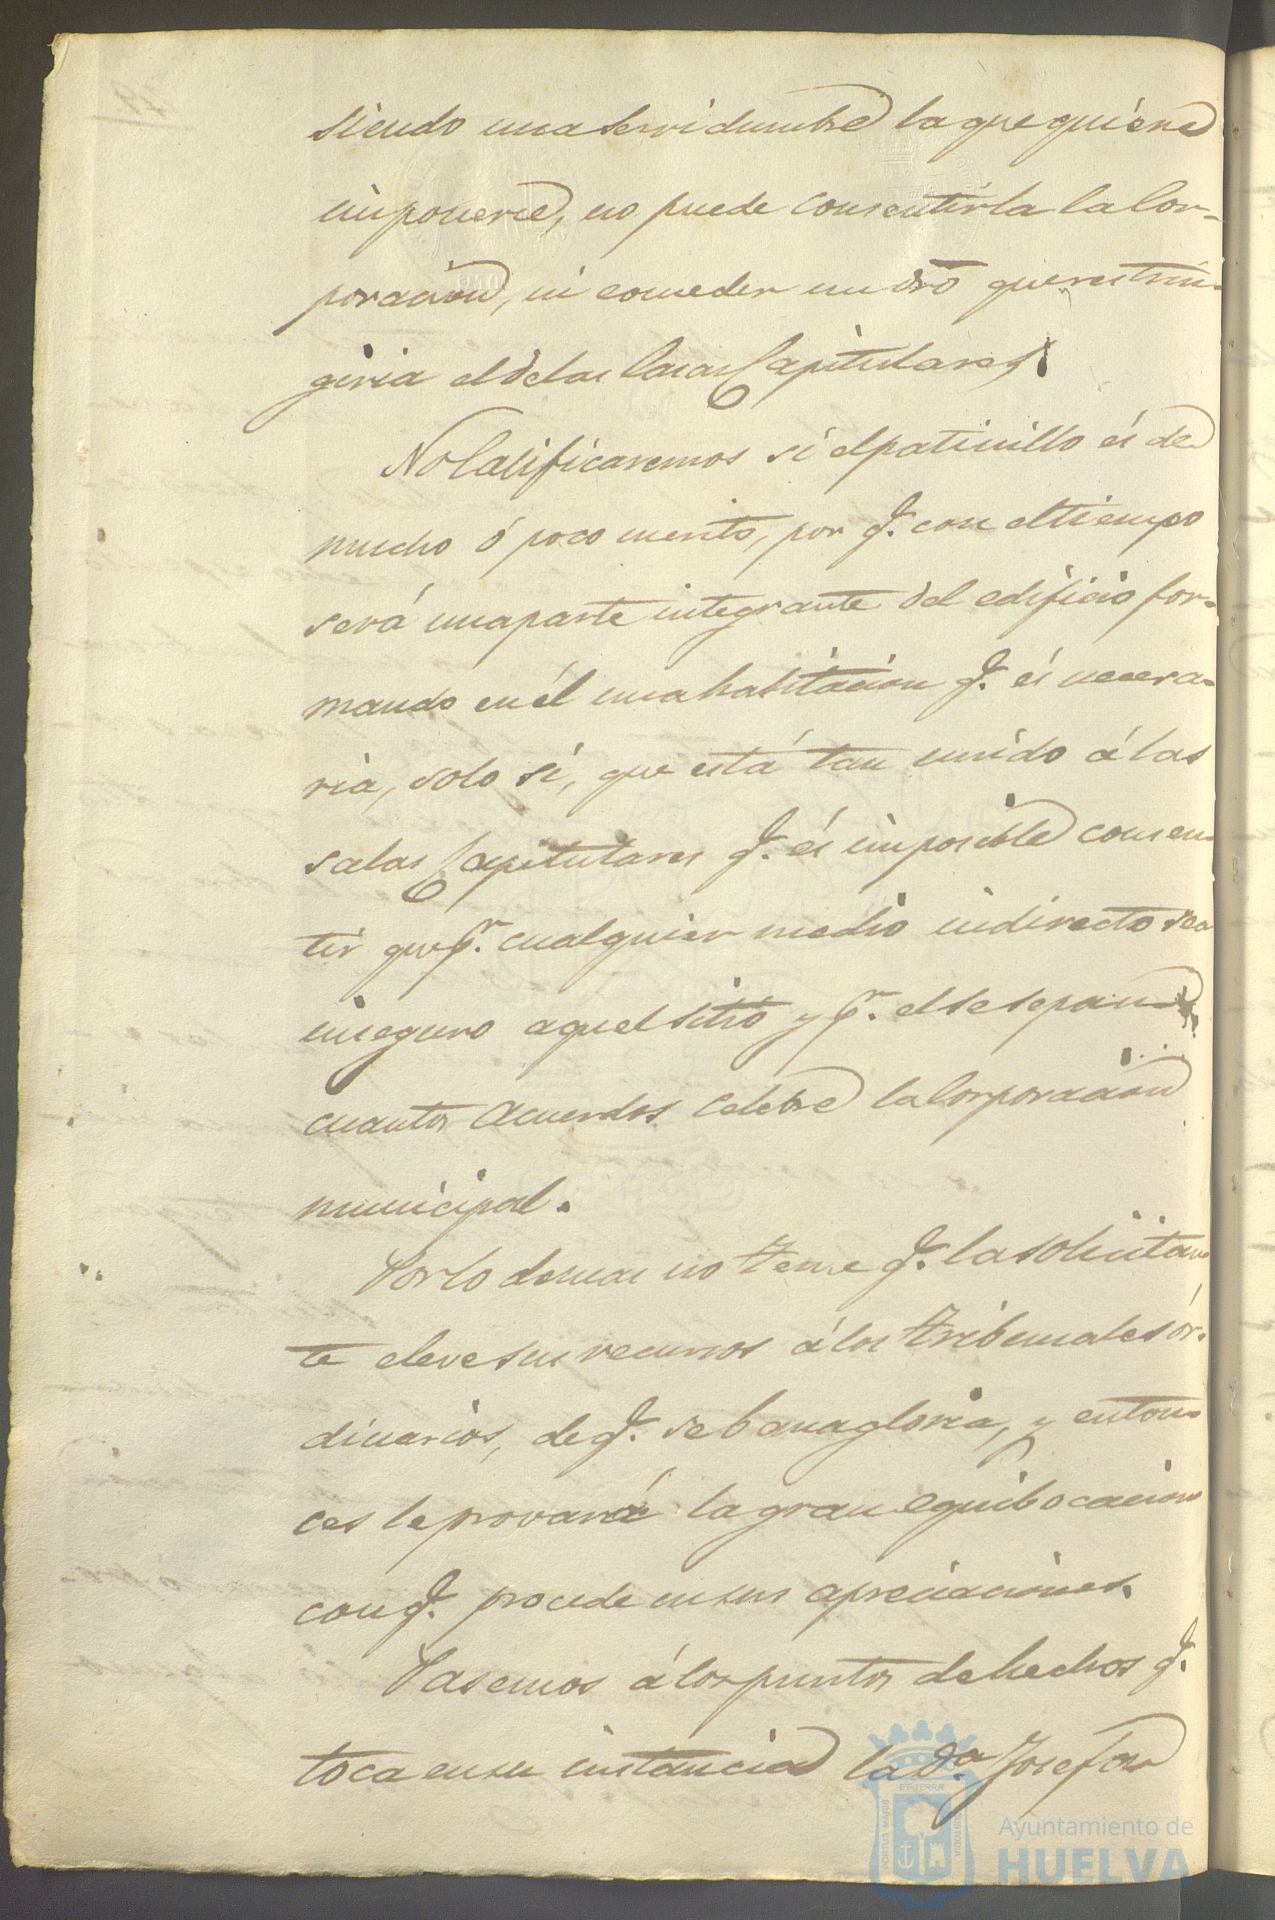 siendo una servidumbre la que quiere
imponerse, no puede consentirla la Cor-
poracion, ni conceder un dro que restrin-
giria el de las Casas Capitulares.
No Calificaremos si el patinillo és de
mucho ó poco merito, por q. con el tiempo
será una parte integrante del edificio for-
mando en él una habitacion q. és necesa-
ria, solo sí, que está tan unido á las
salas Capitulares q. és imposible consen-
tir que pr. cualquier medio indirecto sea
inseguro aquel sitio y pr. el se sepan
cuantos acuerdos celebre la Corporacion
municipal.
Por lo demas no teme q. la solicitan-
te eleve sus recursos á los tribunales ór-
dinarios, de q. se banagloria, y enton-
ces le provará la gran equibocacion
con q. procede en sus apreciaciones.
Pasemos á los puntos de hechos q.
toca en su instancia la Da. Josefa
ET TERRÆ
PORTUS MARIS
CUSTODIA
Ayuntamiento de
HUELVA